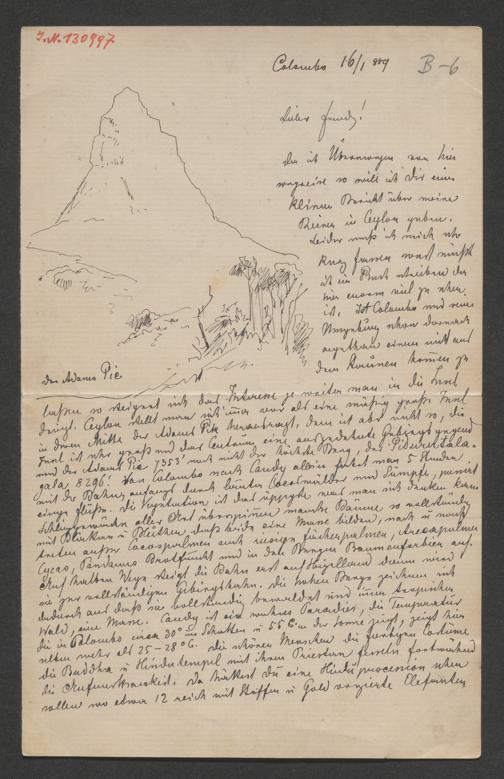 I.N. 130997
Colombo 16/1 889
B-6
Lieber Freund!
Da ich Übermorgen von hier
wegreise so will ich Dir einen
kleinen Bericht über meine
Reisen in Ceylon geben.
Leider muß ich mich sehr
kurz fassen sonst müßte
ich ein Buch schreiben da
hier enorm viel zu sehen
ist. Ist Colombo und seine
Umgebung schon darnach
angethan einen nicht aus
dem Staunen kommen zu
der Adams Pic
lassen so steigert sich das Interesse je weiter man in die Insel
dringt. Ceylon stellt man sich immer vor als eine mäßig große Insel
in deren Mitte der Adams Pik herausragt, dem ist aber nicht so, die
Insel ist sehr groß und das Centrum eine ausgedehnte Gebirgsgegend
und der Adams Pic 7353' noch nicht der höchste Berg, das Pidurutala-
gala 8296'. Von Colombo nach Candy allein fährt man 5 Stunden
mit der Bahn, anfangs durch lauter Cocoswälder und Sümpfe, passirt
einige Flüsse. Die Vegetation ist das üppigste was man sich denken kann
Schlingpflanzen aller Art überspinnen manche Bäume so vollständig
mit Blättern u Blüthen, daß beide eine Masse bilden, nach u nach
treten außer Cocospalmen auch riesige Fächerpalmen, Arecapalmen
Cycas, Pandanus Brotfrucht und in den Bergen Baumfarren auf.
Auf halbem Wege steigt die Bahn erst auf Hügelland dann wird
sie zur vollständigen Gebirgsbahn. Die hohen Berge zeichnen sich
dadurch aus daß sie vollständig bewaldet sind
Wald, eine Masse. Candy ist ein wahres Paradies, die Temperatur
die in Colombo circa 30° im Schatten u 55 C in der Sonne zeigt, zeigt hier
selten mehr als 25-28° C. Die schönen Menschen die farbigen Costume
die Buddha u Hindutempel mit ihren Priestern fesseln fortwährend
die Aufmerksamkeit. Da hättest Du eine Hinduprocession sehen
sollen wo etwa 12 reich mit Stoffen u Gold verzierte Elefanten